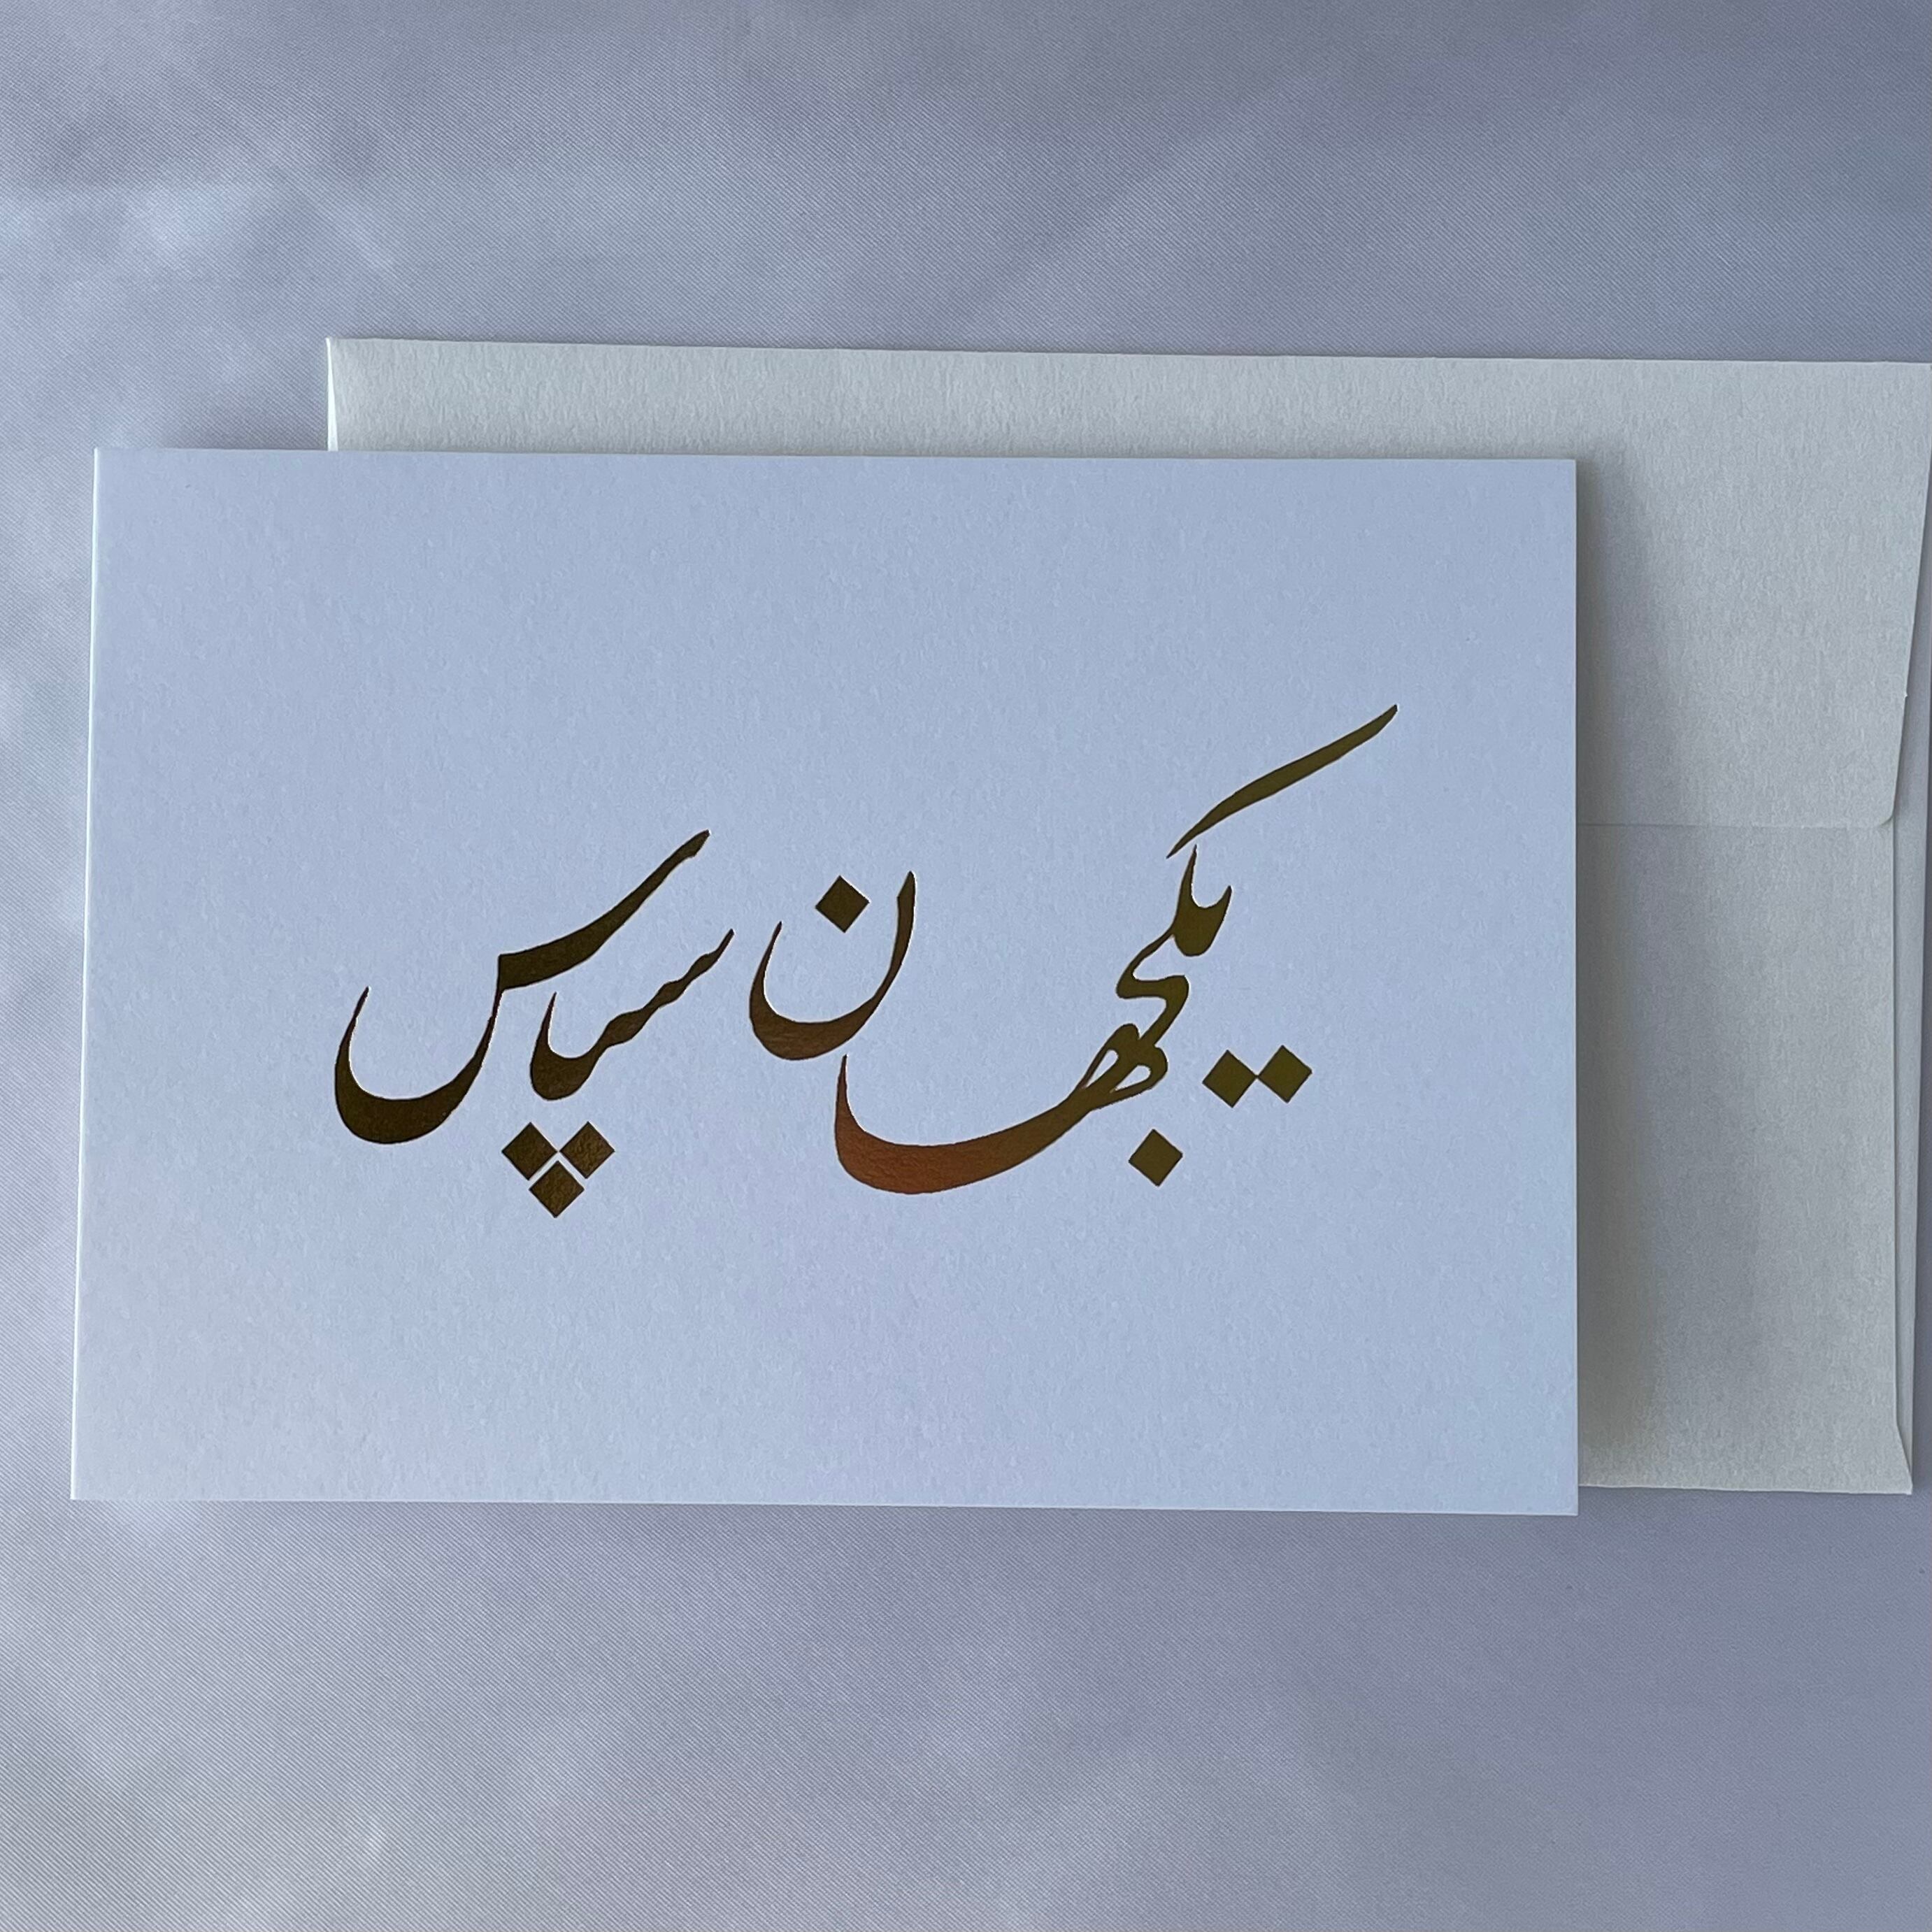 یکجهان سپاس